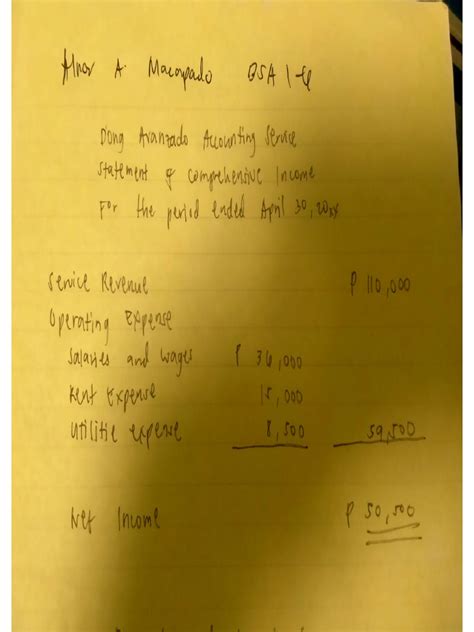 Alnor A. Macapado BSA 1-G
Dong Avanzado Accounting Service
Statement of Comprehensive Income
For the period ended April 30, 20xx
Service Revenue ₱ 110,000
Operating Expense
Salaries and wages ₱ 36,000
Rent Expense 15,000
Utilitie expense 8,500 59,500
Net Income ₱ 50,500